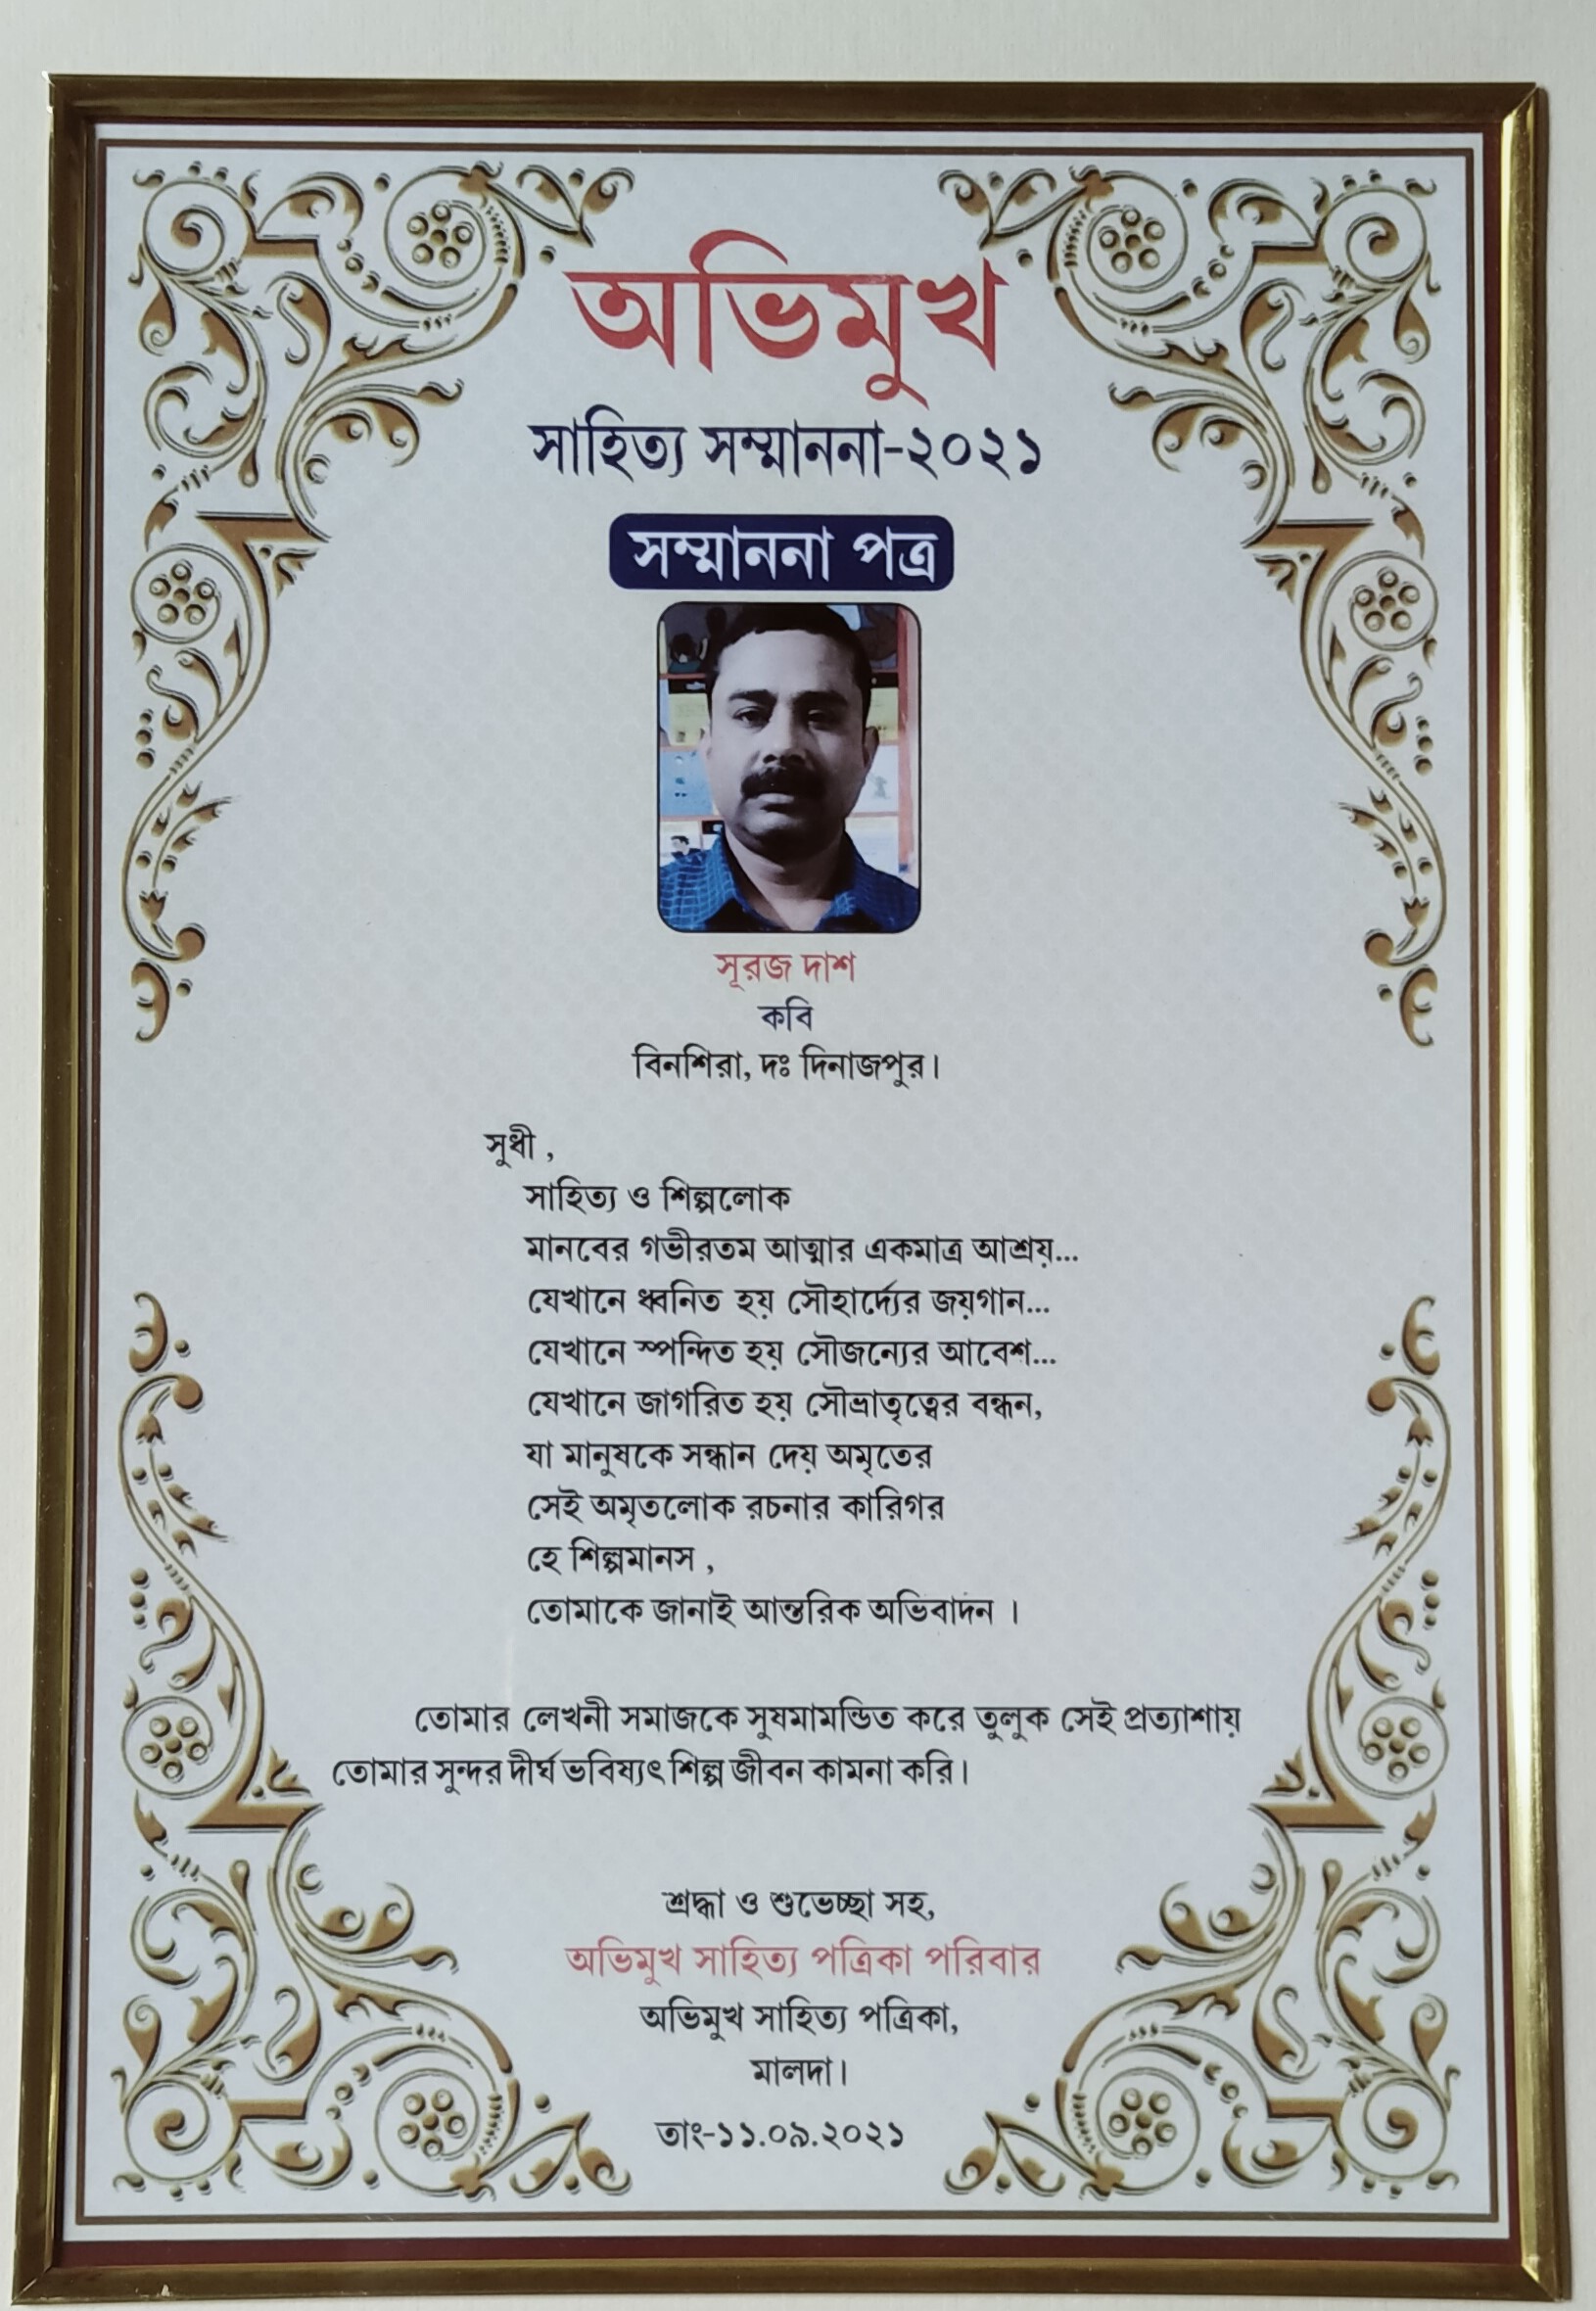 অভিমুখ
সাহিত্য সম্মাননা-২০২১
সম্মাননা পত্র
সূরজ দাশ
কবি
বিনশিরা, দঃ দিনাজপুর।
সুধী ,
সাহিত্য ও শিল্পলোক
মানবের গভীরতম আত্মার একমাত্র আশ্রয়...
যেখানে ধ্বনিত হয় সৌহার্দ্যের জয়গান...
যেখানে স্পন্দিত হয় সৌজন্যের আবেশ...
যেখানে জাগরিত হয় সৌভ্রাতৃত্বের বন্ধন,
যা মানুষকে সন্ধান দেয় অমৃতের
সেই অমৃতলোক রচনার কারিগর
হে শিল্পমানস ,
তোমাকে জানাই আন্তরিক অভিবাদন ।
তোমার লেখনী সমাজকে সুষমামন্ডিত করে তুলুক সেই প্রত্যাশায়
তোমার সুন্দর দীর্ঘ ভবিষ্যৎ শিল্প জীবন কামনা করি।
শ্রদ্ধা ও শুভেচ্ছা সহ,
অভিমুখ সাহিত্য পত্রিকা পরিবার
অভিমুখ সাহিত্য পত্রিকা,
মালদা।
তাং-১১.০৯.২০২১